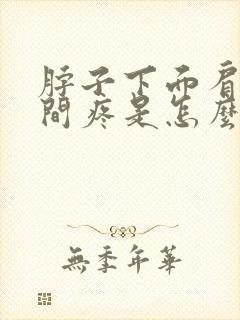 脖子下面肩
間疼是怎麼
無季年華